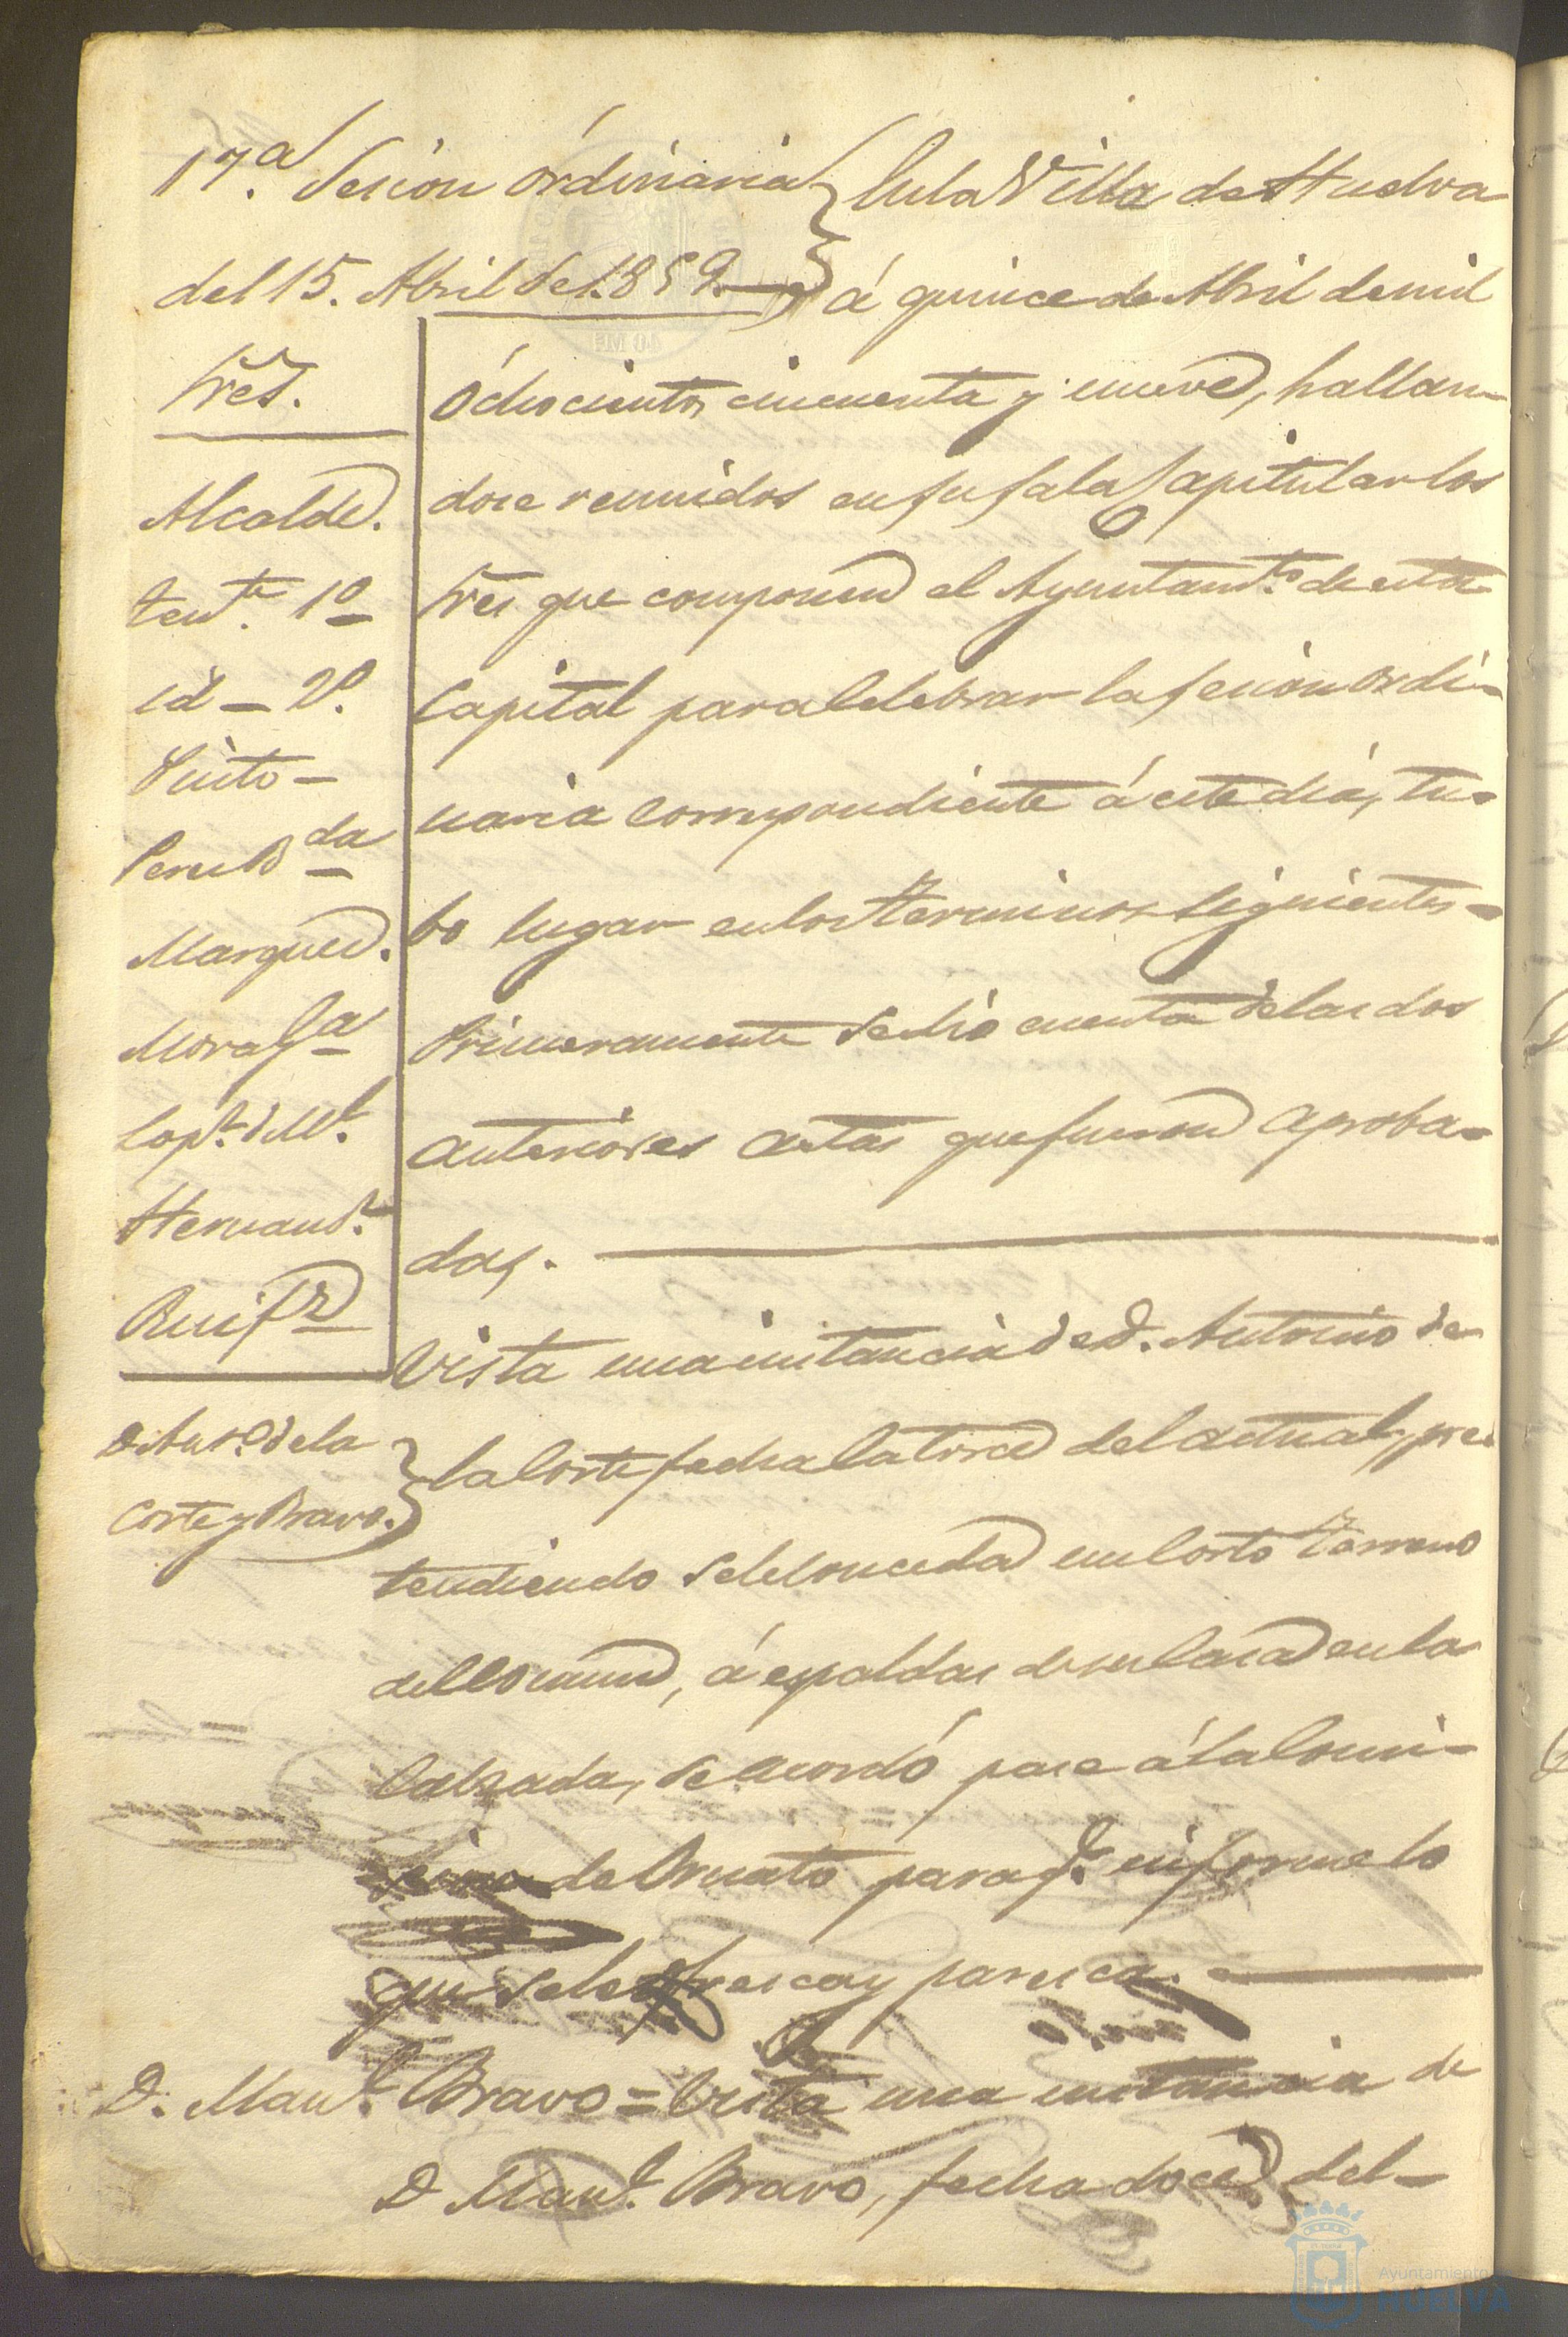 17.ª Sesion ordinaria
del 15. Abril de 1.859.
Sres.
Alcalde.
Tente. 1º
id - 2º.
Pinto -
Marquez.
Mora Ga
Lopz. d Ml.
Hernandz.
D. Anto. de la
Corte y Bravo.
En la Villa de Huelva
á quince de Abril de mil
ochocientos cincuenta y nueve, hallan-
dose reunidos en su sala Capitular los
Sres que componen el Ayuntamto. de esta
Capital para celebrar la sesion ordi-
naria correspondiente á este dia, tu-
bo lugar en los terminos siguientes -
Primeramente se dió cuenta de las dos
anteriores actas que fueron aproba-
das.
Vista una instancia de D. Antonio de
la Corte fecha catorce del actual, pre-
tendiendo se le conceda un corto terreno
del comun, á espaldas de su casa en la
Calzada, se acordó pase á la Comi-
sion de Ornato para qe. informe lo
que se le ofresca y paresca.
D. Manl. Bravo = Vista una instancia de
D Manl. Bravo, fecha doce del -
Ayuntamiento
HUELVA